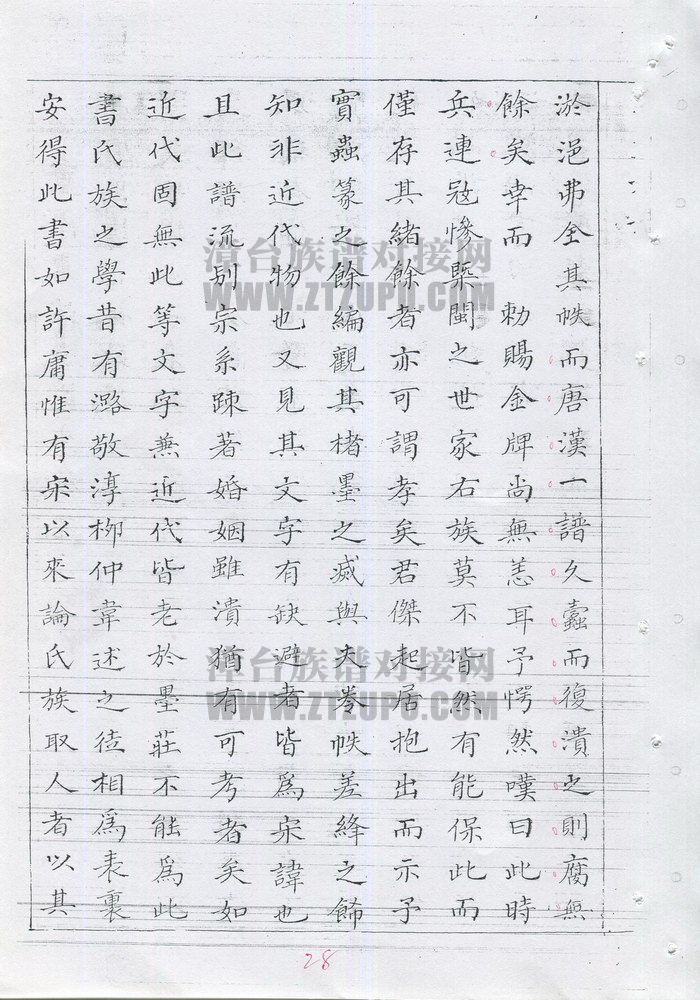 淤浥弗全其帙而唐漢一譜久蠧而復潰之則腐無
餘矣幸而 勅賜金牌尚無恙耳予愕然嘆曰此時
兵連寇慘槩閩之世家右族莫不皆然有能保此而
僅存其緒餘者亦可謂孝矣君傑起居抱出而示予
實蟲篆之餘編觀其楮墨之滅與夫卷帙差絳之飾
知非近代物也又見其文字有缺避者皆為宋諱也
且此譜流别宗系踈著婚姻雖潰猶有可考者矣如
近代固無此等文字蕪近代皆老於墨莊不能為此
書氏族之學昔有潞敬淳柳仲韋述之徒相為表裏
安得此書如許庸惟有宋以來論氏族取人者以其
漳台族谱对接网
WWW.ZTZUPU.COM
漳台族谱对接网
WWW.ZTZUPU.COM
28